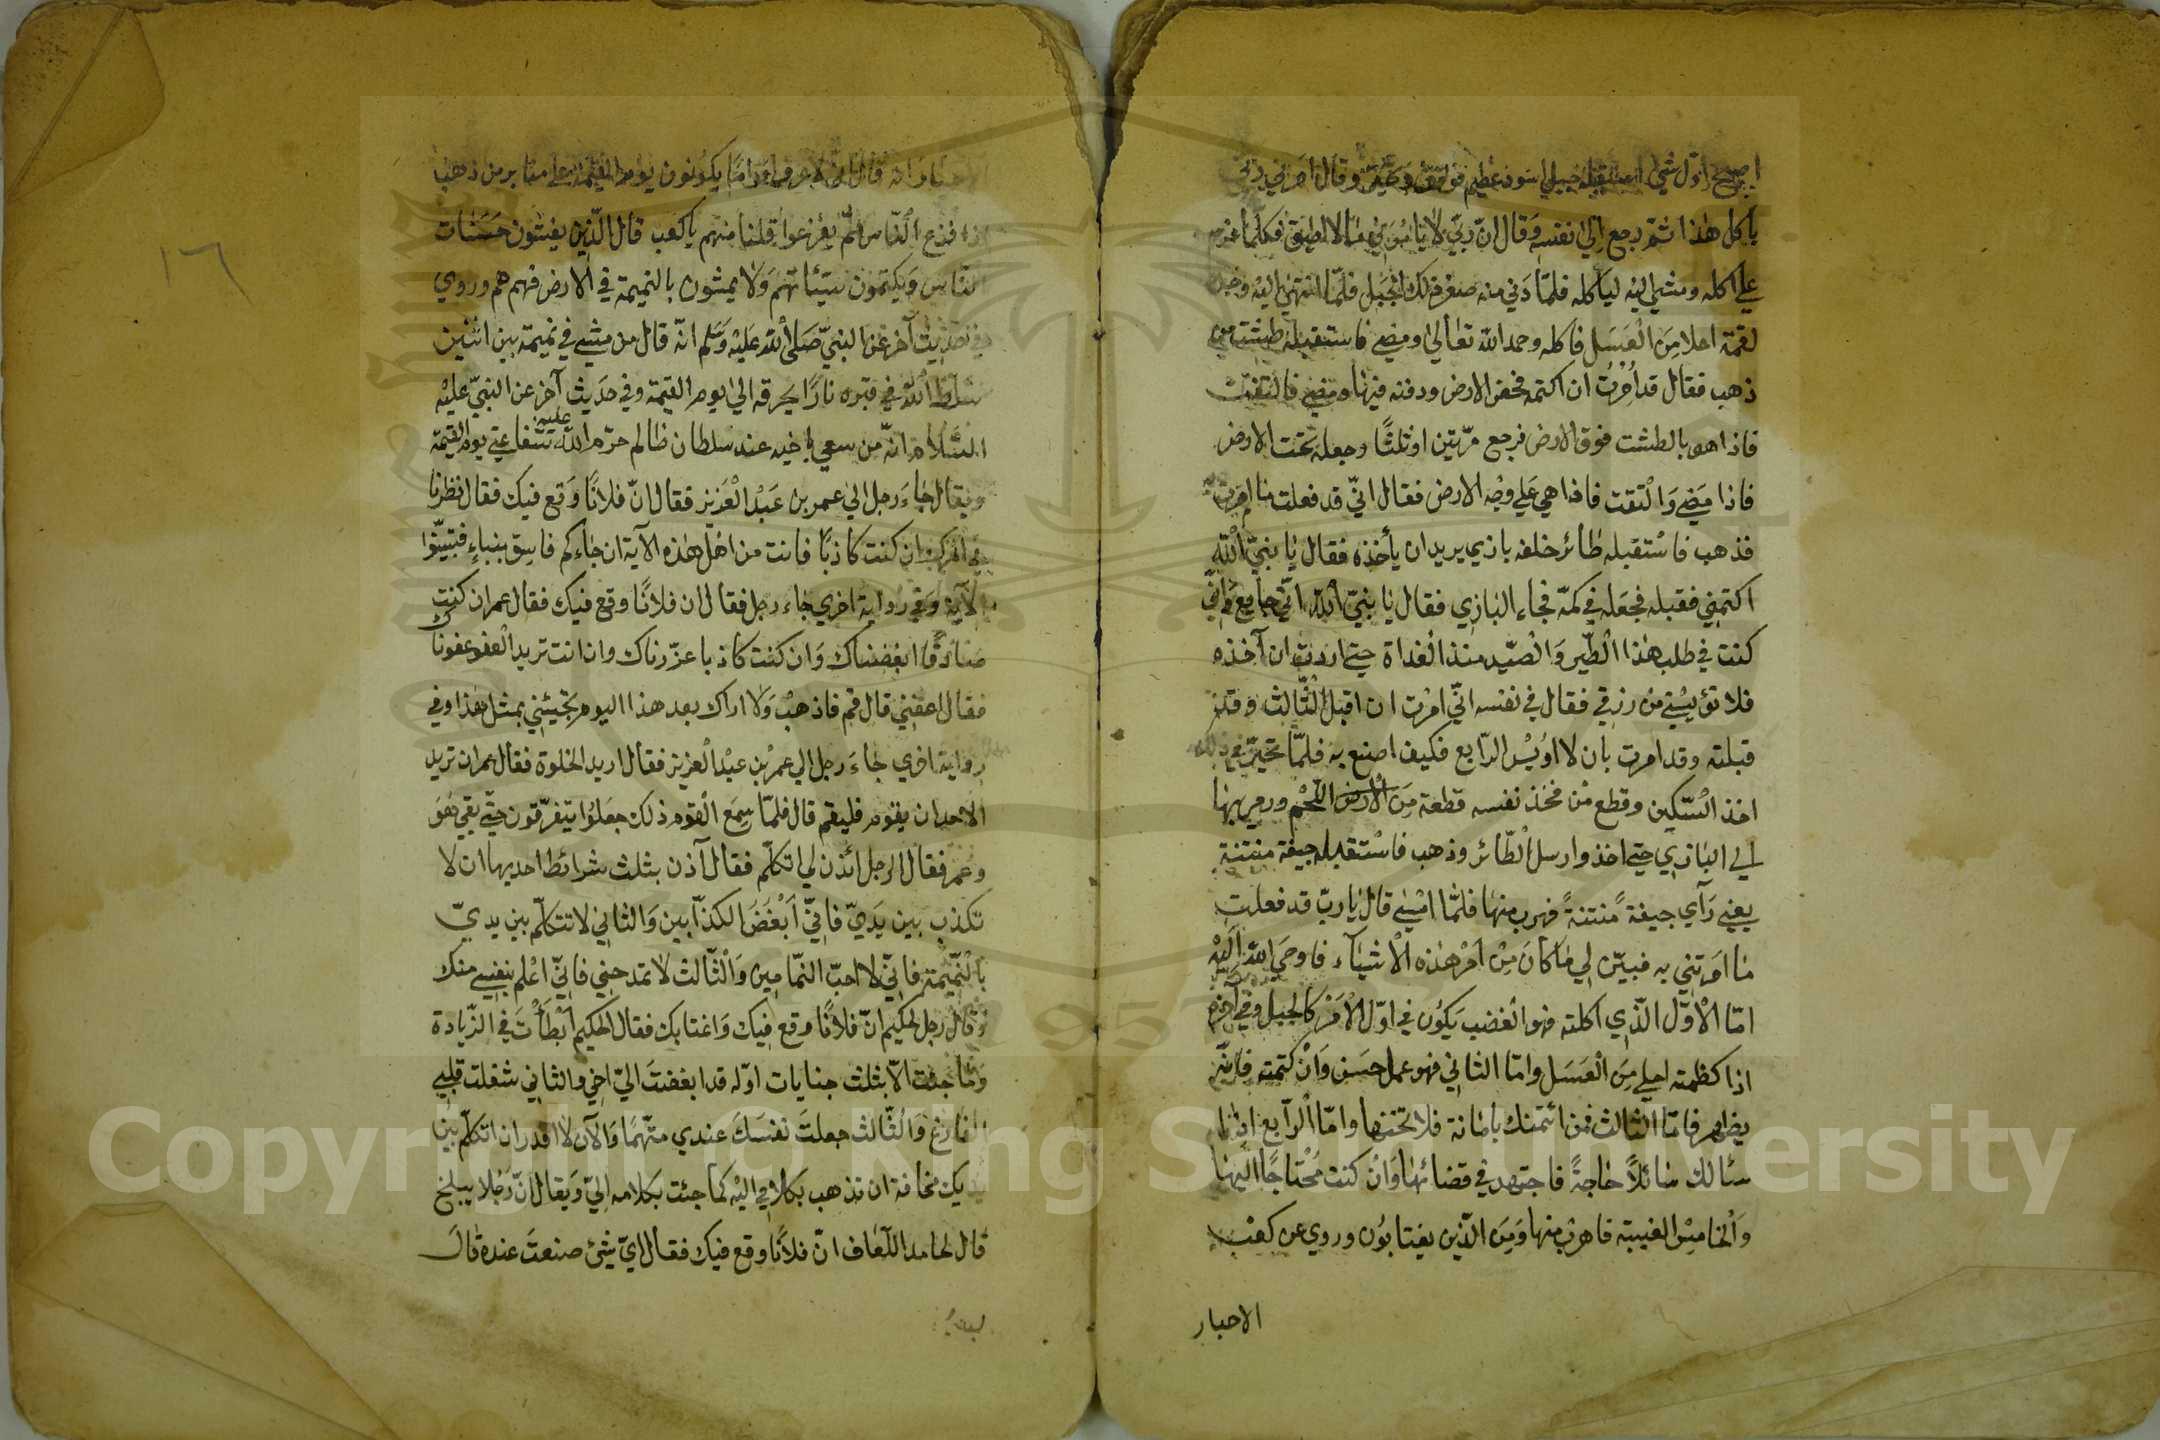 اصبح اول شيء استقبله جبل اسود عظيم فوقف وتحير وقال امرني ربي
باكل هذا ثم رجع الي نفسه وقال ان ربي لا يامرني بما لا اطيق فكلما عزم
علي اكله ومشي اليه لياكله فلما دني منه صغر ذلك الجبل فلما انتهي اليه وجده
لقمة احلا من العسل فاكله وحمد الله تعالي ومضي فاستقبله طشت من
ذهب فقال قد امرت ان اكتمه فحفر الارض ودفنه فيها ومضي فالتفت
فاذا هو بالطشت فوق الارض فرجع مرتين او ثلثا وجعله تحت الارض
فاذا مضي والتفت فاذا هي علي وجه الارض فقال اني قد فعلت ما امرت
فذهب فاستقبله طائر خلفه بازي يريد ان يأخذه فقال يا نبي الله
اكتمني فقبله فجعله في كمه فجاء البازي فقال يا نبي الله اني جايع واني
كنت في طلب هذا الطير والصيد منذ الغداة حتي اردت ان آخذه
فلا تؤيسني من رزقي فقال في نفسه اني امرت ان اقبل الثالث وقد
قبلته وقد امرت بان لا اويس الرابع فكيف اصنع به فلما تحير في ذلك
اخذ السكين وقطع من فخذ نفسه قطعة من الارض اللحم ورمي بها
الي البازي حتي اخذ وارسل الطائر وذهب فاستقبله جيفة منتنة
يعني رآي جيفة منتنة فهرب منها فلما امسي قال يا رب قد فعلت
ما امرتني به فبين لي ما كان من امر هذه الاشياء فاوحي الله اليه
اما الاول الذي اكلته فهو الغضب يكون في اول الامر كالجبل وفي آخره
اذا كظمته احلي من العسل واما الثاني فهو عمل حسن وان كتمته فانه
يظهر فاما الثالث فمن ائتمنك بامانة فلا تخنها واما الرابع اذا
سئالك سائلا حاجة فاجتهد في قضائها وان كنت محتاجا اليها
والخامس الغيبة فاهرب منها ومن الذين يغتابون وروي عن كعب
الاحبار
١٦
الاحبار انه قال اني لاعرف اقواما يكونون يوم القيمة علي منابر من ذهب
اذا فزع الناس لم يفزعوا قلنا منهم يا كعب قال الذين يفشون حسنات
الناس ويكتمون سيئاتهم ولا يمشون بالنميمة في الارض فهم هم وروي
في حديث آخر عن النبي صلي الله عليه وسلم انه قال من مشي في نميمة بين اثنين
سلط الله في قبره نارا يحرقه الي يوم القيمة وفي حديث آخر عن النبي عليه
السلام انه من سعي باخيه عند سلطان ظالم حرم الله عليه شفاعتي يوم القيمة
ويقال جاء رجل الي عمر بن عبد العزيز فقال ان فلانا وقع فيك فقال نظرنا
في امرك ان كنت كاذبا فانت من اهل هذه الآية ان جاءكم فاسق بنباء فتبينوا
الآية وفي رواية اخري جاء رجل فقال ان فلانا وقع فيك فقال عمر ان كنت
صادقا ابغضناك وان كنت كاذبا عزرناك وان انت تريد العفو عفونا
فقال اعفني قال قم فاذهب ولا اراك بعد هذا اليوم تجيئني بمثل هذا وفي
رواية اخري جاء رجل الي عمر بن عبد العزيز فقال اريد الخلوة فقال عمر ان تريد
الاحد ان يقوم فليقم قال فلما سمع القوم ذلك جعلوا يتفرقون حتي بقي هو
وعمر فقال الرجل ائذن لي اتكلم فقال آذن بثلث شرائط احديها ان لا
تكذب بين يدي فاني ابغض الكذابين والثاني لا تتكلم بين يدي
بالنميمة فاني لا احب النمامين والثالث لا تمدحني فاني اعلم بنفسي منك
وقال رجل لحكيم ان فلانا وقع فيك واغتابك فقال الحكيم ابطأت في الزيادة
وما جئت الا بثلث جنايات اوله قد ابغضت الي اخي والثاني شغلت قلبي
الفارغ والثالث جعلت نفسك عندي متهما والآن لا اقدر ان اتكلم بين
يديك مخافة ان تذهب بكلامي اليه كما جئت بكلامه الي ويقال ان رجلا ببلخ
قال لحامد اللفاف ان فلانا وقع فيك فقال اي شئ صنعت عنده قال